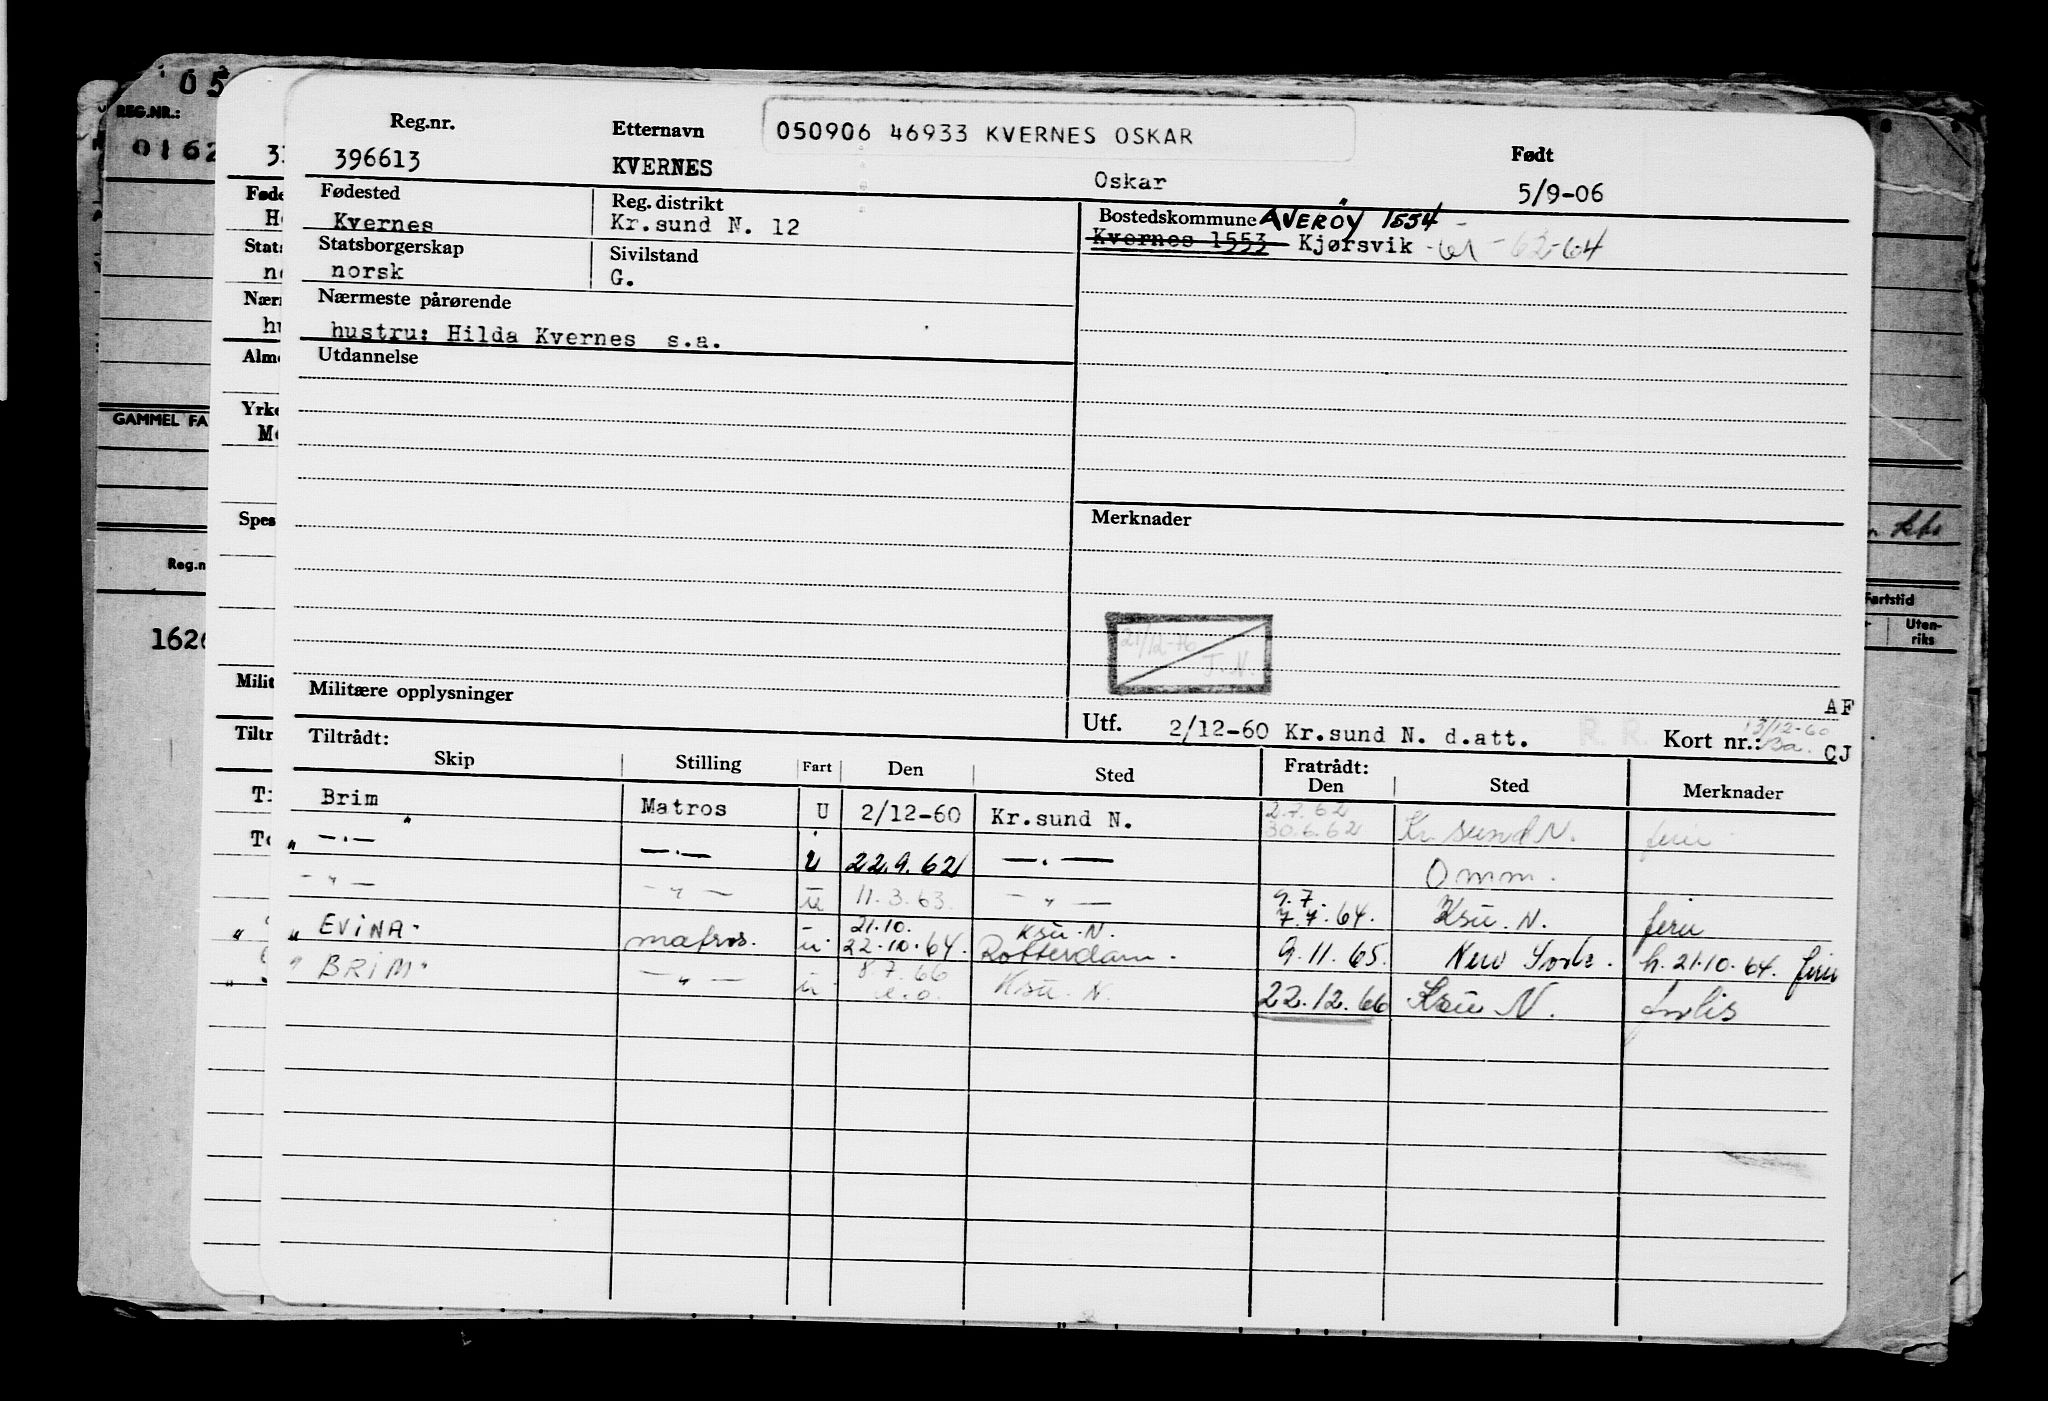 05
REG.NR.:
0162
GAMMEL FA
Reg.n
1626
Føde
Stats
Nærm
Alme
Yrke
Spes
Milit
Tiltr
050906 46933 KVERNES OSKAR
Reg.nr. Etternavn Født
396613 KVERNES Oskar 5/9-06
Fødested Reg. distrikt Bostedskommune AVERØY 1554
Kvernes Kr.sund N. 12 Kvernes 1553 Kjørsvik -61 -62-64
Statsborgerskap Sivilstand
norsk G.
Nærmeste pårørende
hustru: Hilda Kvernes s.a.
Utdannelse
Merknader
21/12-76
J.N.
Militære opplysninger
AF
Utf. 2/12-60 Kr.sund N. d.att. R. R. Kort nr.: 3a. CJ
13/12-60
Tiltrådt: Fratrådt:
Skip Stilling Fart Den Sted Den Sted Merknader
Brim Matros U 2/12-60 Kr.sund N. 2.7.62 30.6.62 Kr.sund N. ferie
" —.— —.— u 22.9.62 —.— Omm.
— " — — " — u 11.3.63. — " — 9.7. 7.7.64. Ksu. N. ferie
" EVINA matros. u 21.10. 22.10.64. Ksu. N. Rotterdam. 9.11.65. New York. h. 21.10.64. ferie
" BRIM — " — u 8.7.66 Ksu. N. 22.12.66 Ksu N.
Fartstid
Uten-
riks